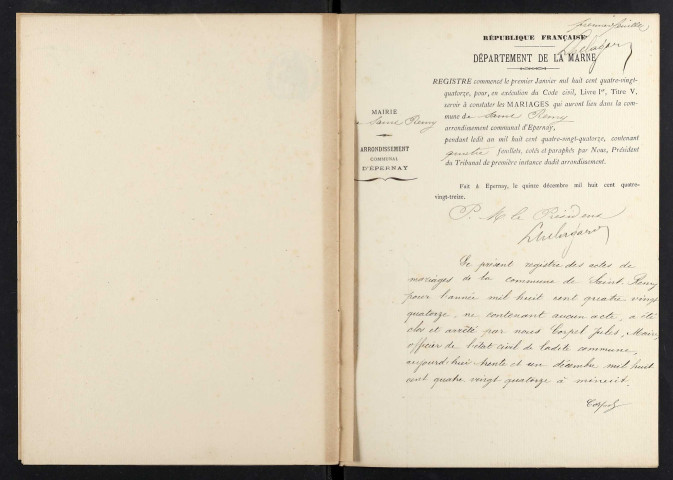 premier feuillet
RÉPUBLIQUE FRANÇAISE
DÉPARTEMENT DE LA MARNE
REGISTRE commencé le premier Janvier mil huit cent quatre-vingt-
quatorze, pour, en exécution du Code civil, Livre Ier, Titre V,
servir à constater les MARIAGES qui auront lieu dans la com-
mune de Saint Remy
arrondissement communal d'Epernay,
pendant ledit an mil huit cent quatre-vingt-quatorze, contenant
quatre feuillets, cotés et paraphés par Nous, Président
du Tribunal de première instance dudit arrondissement.
Fait à Epernay, le quinze décembre mil huit cent quatre-
vingt-treize.
P. M. le Président
MAIRIE
Saint Remy
ARRONDISSEMENT
COMMUNAL
D'ÉPERNAY
Le présent registre des actes de
mariages de la commune de Saint Remy
pour l'année mil huit cent quatre vingt
quatorze, ne contenant aucun acte, a été
clos et arrêté par nous Corpel Jules, Maire,
officier de l'état civil de ladite commune,
aujourd'hui trente et un décembre mil huit
cent quatre vingt quatorze à minuit.
Corpel